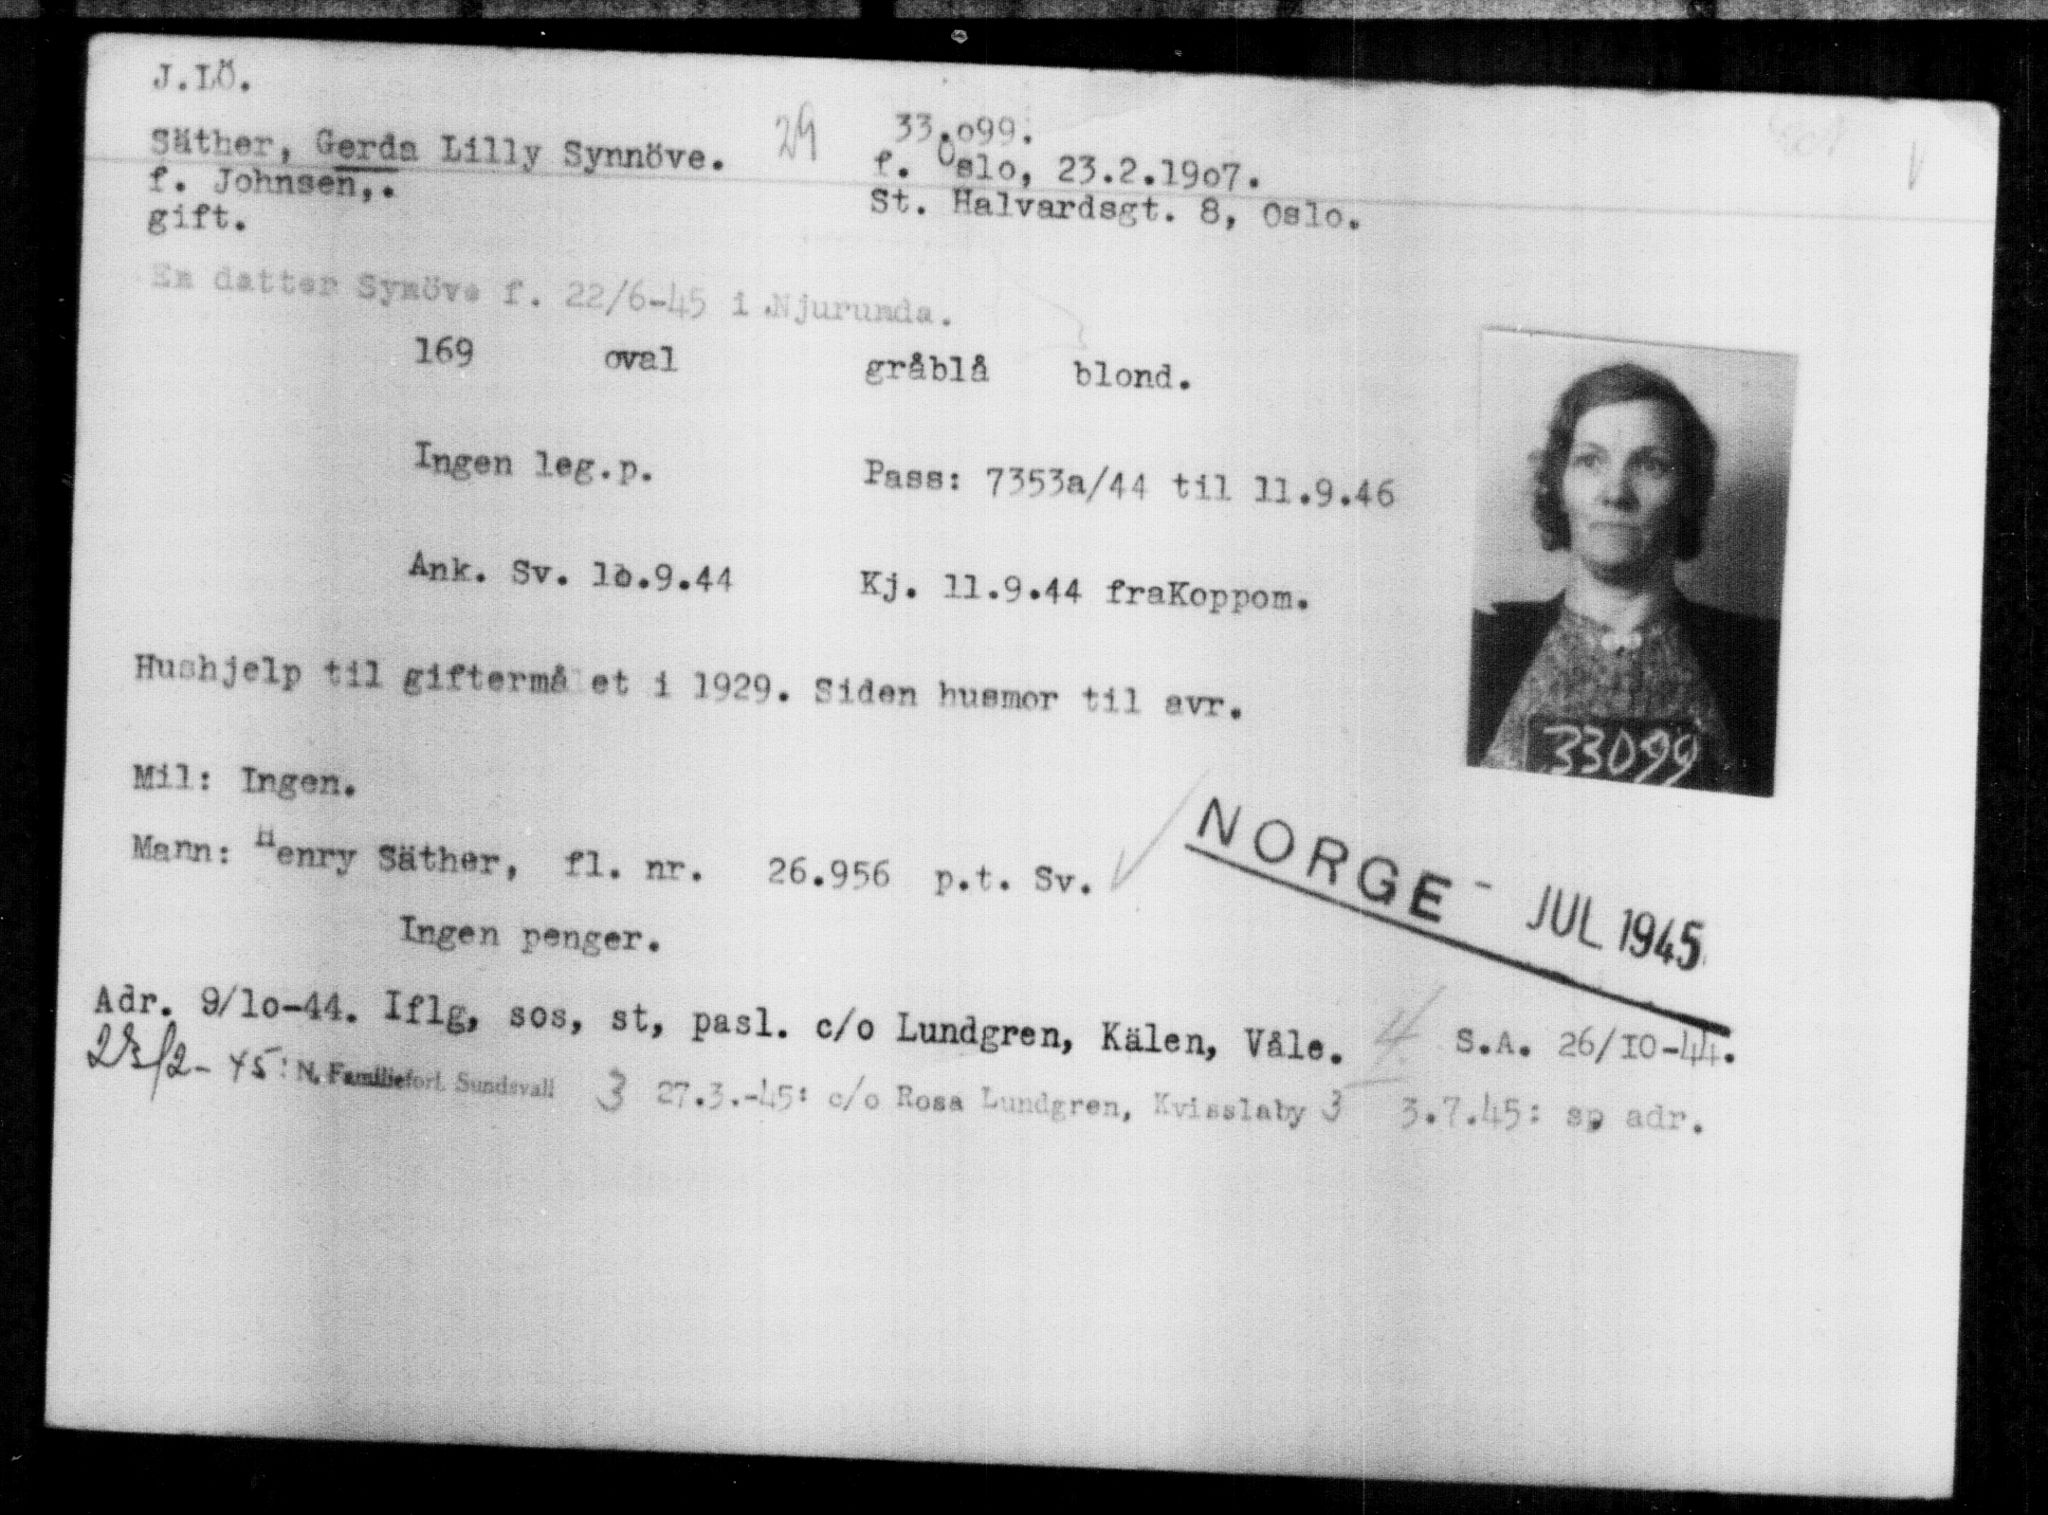 J.LÖ.
Säther, Gerda Lilly Synnöve. 29 33.o99.
f. Johnsen,. f. Oslo, 23.2.19o7.
gift. St. Halvardsgt. 8, Oslo.
En datter Synöve f. 22/6-45 i Njurunda.
169 oval gråblå blond.
Ingen leg.p. Pass: 7353a/44 til 11.9.46
Ank. Sv. 1o.9.44 Kj. 11.9.44 fraKoppom.
Hushjelp til giftermålet i 1929. Siden husmor til avr.
33099
Mil: Ingen.
Mann: Henry Säther, fl. nr. 26.956 p.t. Sv.
NORGE - JUL 1945
Ingen penger.
Adr. 9/1o-44. Iflg, sos, st, pasl. c/o Lundgren, Kälen, Våle. 4 S.A. 26/10-44.
23/2-45: N. Familieforl. Sundsvall 3 27.3.-45: c/o Rosa Lundgren, Kvisslaby 3 3.7.45: sp adr.